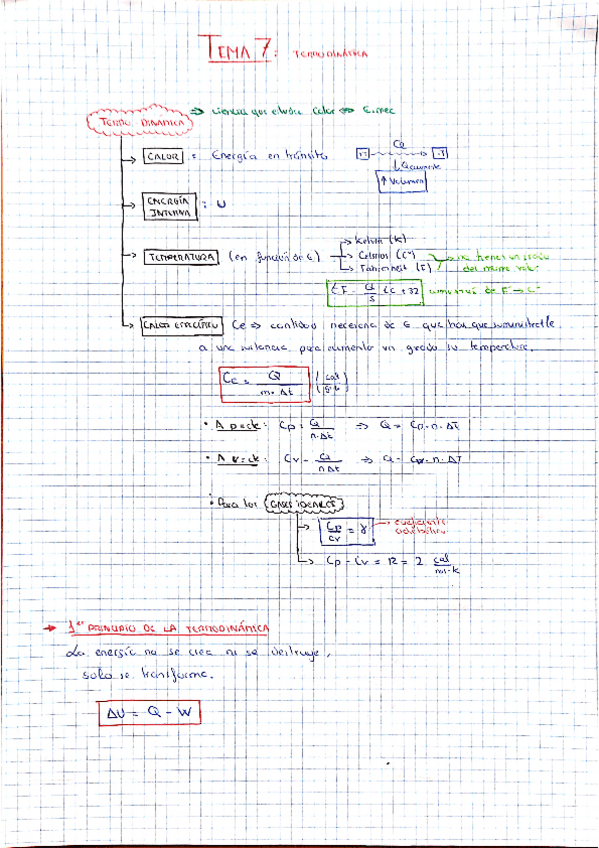 TEMA 7: TERMODINÁMICA
TERMODINÁMICA ⇒ ciencia que estudia Calor ⇔ E.mec
CALOR = Energía en tránsito
Q
↑ Volumen
ENERGÍA INTERNA : U
TEMPERATURA (en función de
Kelvin (K)
Celsius (Cº)
Fahrenheit (F)
del mismo
+ 32
de F → Cº
CALOR ESPECÍFICO Ce ⇒ cantidad necesaria de E que hay que suministrarle
a una sustancia para aumentar un grado su temperatura.
Ce = Q / m · Δt (cal / g·k)
• A p=ctk: Cp = Q / n·Δt ⇒ Q = Cp·n·ΔT
• A v=ctk: Cv = Q / n Δt ⇒ Q = Cv·n·ΔT
• Para los GASES IDEALES
Cp / Cv = γ → coeficiente adiabático
Cp - Cv = R = 2 cal / mol·k
→ 1er PRINCIPIO DE LA TERMODINÁMICA
La energía no se crea ni se destruye,
solo se transforma.
ΔU = Q - W